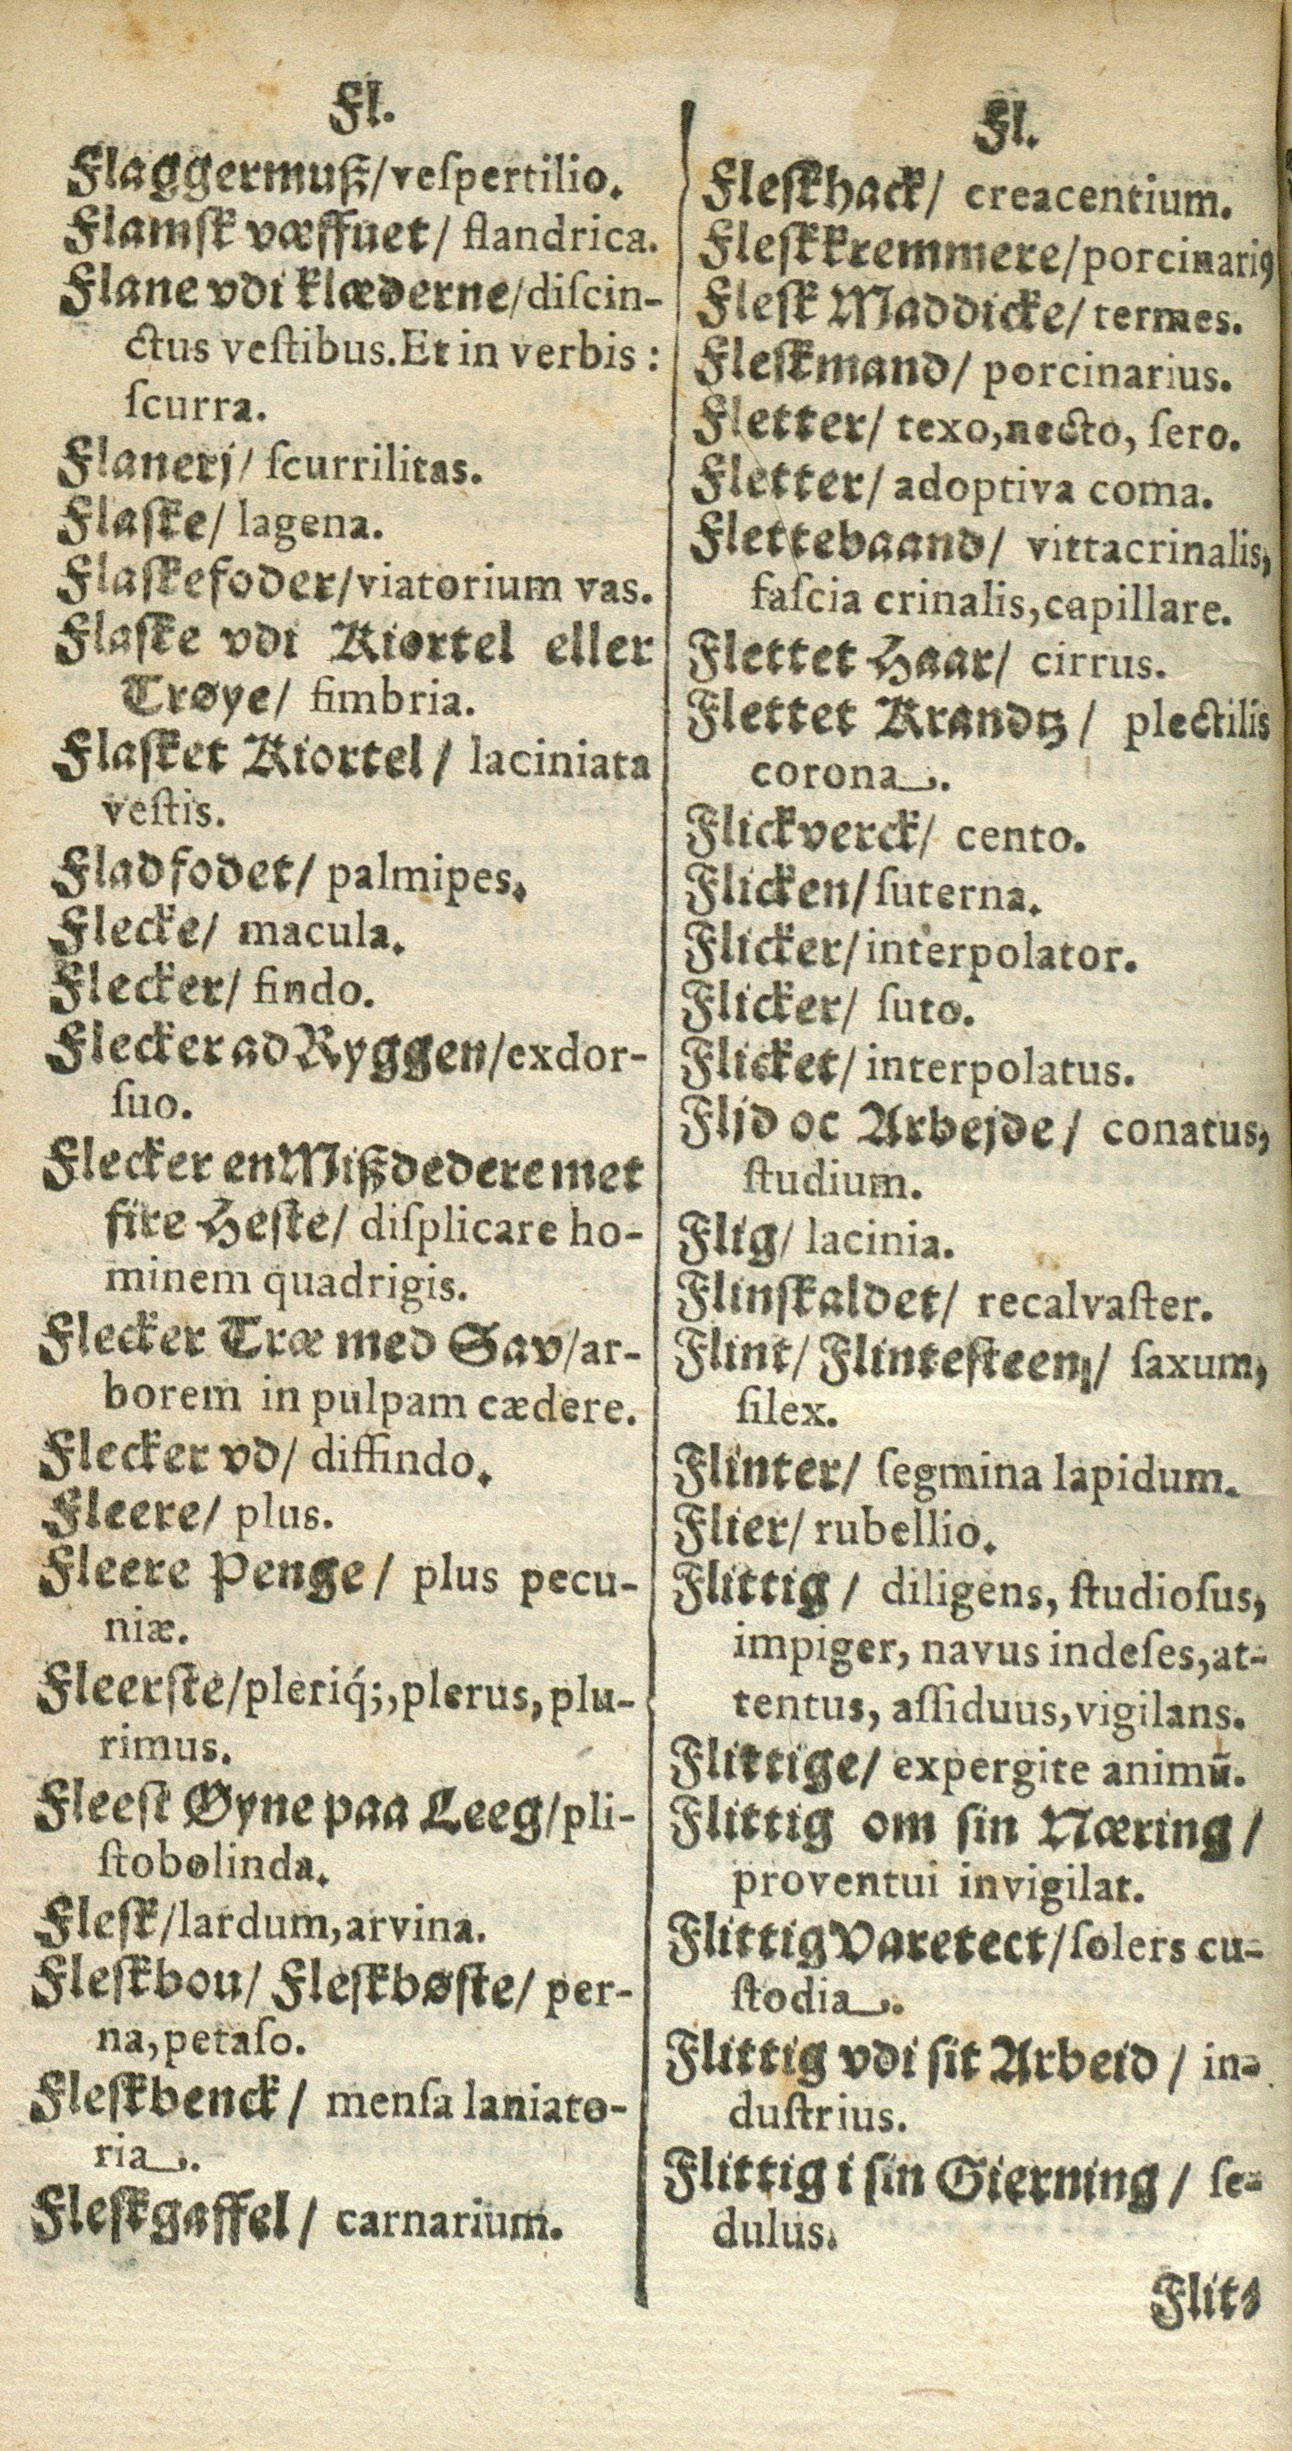 Fl.
Flaggermuß/veſpertilio.
Flamſk væffuet/ flandrica.
Flane vdi klæderne/diſcin-
ctus veſtibus.Et in verbis :
ſcurra.
Flanerj/ ſcurrilitas.
Flaſke/ lagena.
Flaſkefoder/viatorium vas.
Flaſke vdi Kiortel eller
Trøye/ fimbria.
Flaſket Kiortel/ laciniata
veſtis.
Fladfodet/ palmipes.
Flecke/ macula.
Flecker/ findo.
Flecker ad Ryggen/exdor-
ſuo.
Flecker en Mißdedere met
fire Heſte/ diſplicare ho-
minem quadrigis.
Flecker Træ med Sav/ar-
borem in pulpam cædere.
Flecker vd/ diffindo.
Fleere/ plus.
Fleere Penge/ plus pecu-
niæ.
Fleerſte/pleriq́;,plerus, plu-
rimus.
Fleeſt Øyne paa Leeg/pli-
ſtobolinda.
Fleſk/lardum,arvina.
Fleſkbou/ Fleſkbøſte/ per-
na,petaſo.
Fleſkbenck/ menſa laniato-
ria.
Fleſkgaffel/ carnarium.
Fl.
Fleſkhack/ creacentium.
Fleſkkremmere/porcinariꝰ
Fleſk Maddicke/ termes.
Fleſkmand/ porcinarius.
Fletter/ texo,necto, ſero.
Fletter/ adoptiva coma.
Flettebaand/ vittacrinalis,
faſcia crinalis,capillare.
Flettet Haar/ cirrus.
Flettet Krandtz/ plectilis
corona.
Flickverck/ cento.
Flicken/ſuterna.
Flicker/interpolator.
Flicker/ ſuto.
Flicket/interpolatus.
Fljd oc Arbejde/ conatus,
ſtudium.
Flig/ lacinia.
Flinſkaldet/ recalvaſter.
Flint/ Flinteſteen/ ſaxum,
ſilex.
Flinter/ ſegmina lapidum.
Flier/ rubellio.
Flittig/ diligens, ſtudioſus,
impiger, navus indeſes,at-
tentus, aſſiduus,vigilans.
Flittige/ expergite animū.
Flittig om ſin Næring/
proventui invigilat.
Flittig Varetect/ſolers cu-
ſtodia.
Flittig vdi ſit Arbeid/ in-
duſtrius.
Flittig i ſin Gierning/ ſe-
dulus.
Flit-